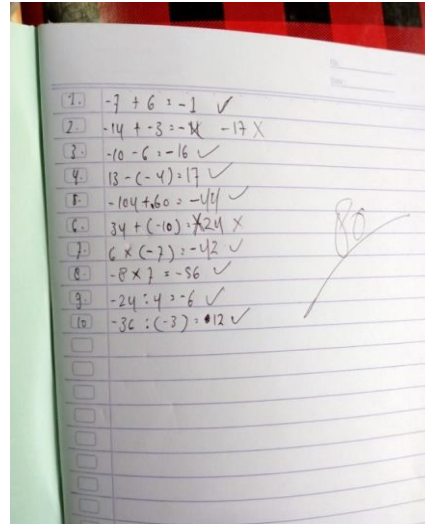 1. -7 + 6 = -1 ✓
2. -14 + -3 = -11 -17 X
3. -10 - 6 = -16 ✓
4. 13 - (-4) = 17 ✓
5. -104 + 60 = -44 ✓
6. 34 + (-10) = 24 X
7. 6 x (-7) = -42 ✓
8. -8 x 7 = -56 ✓
9. -24 : 4 = -6 ✓
10 -36 : (-3) = 12 ✓
80